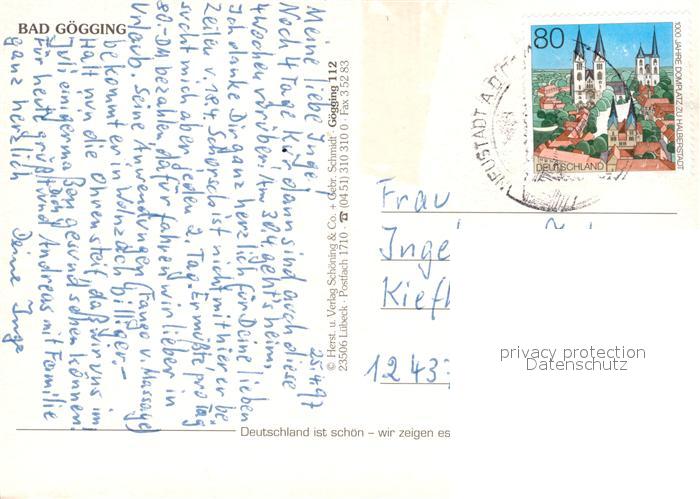 BAD GÖGGING
25.4.97
Meine liebe Inge!
Noch 4 Tage Kur dann sind auch diese
4 Wochen vorüber. Am 30.4. geht's heim.
Ich danke Dir ganz herzlich für Deine lieben
Zeilen v. 18.4. Schorsch ist nicht mit hier er be
sucht mich aber jeden 2. Tag. Er müßte pro Tag
80.-DM bezahlen, dafür fahren wir lieber in
Urlaub. Seine Anwendungen (Fango v. Massage)
bekommt er in Wolnzach billiger.-
Halt nun die Ohren steif, daß wir uns im
Juli einigermaßen gesund sehen können.
Für heute grüßt und Andreas mit Familie
ganz herzlich
Deine Inge
© Herst. u. Verlag Schöning & Co. + Gebr. Schmidt · Gögging 112
23506 Lübeck · Postfach 1710 · ☎ (04 51) 310 310 0 · Fax 3 52 83
80
1000 JAHRE DOMPLATZ ZU HALBERSTADT
DEUTSCHLAND
NEUSTADT A.D.
Frau
Inge
Kief
1243
privacy protection
Datenschutz
Deutschland ist schön – wir zeigen es